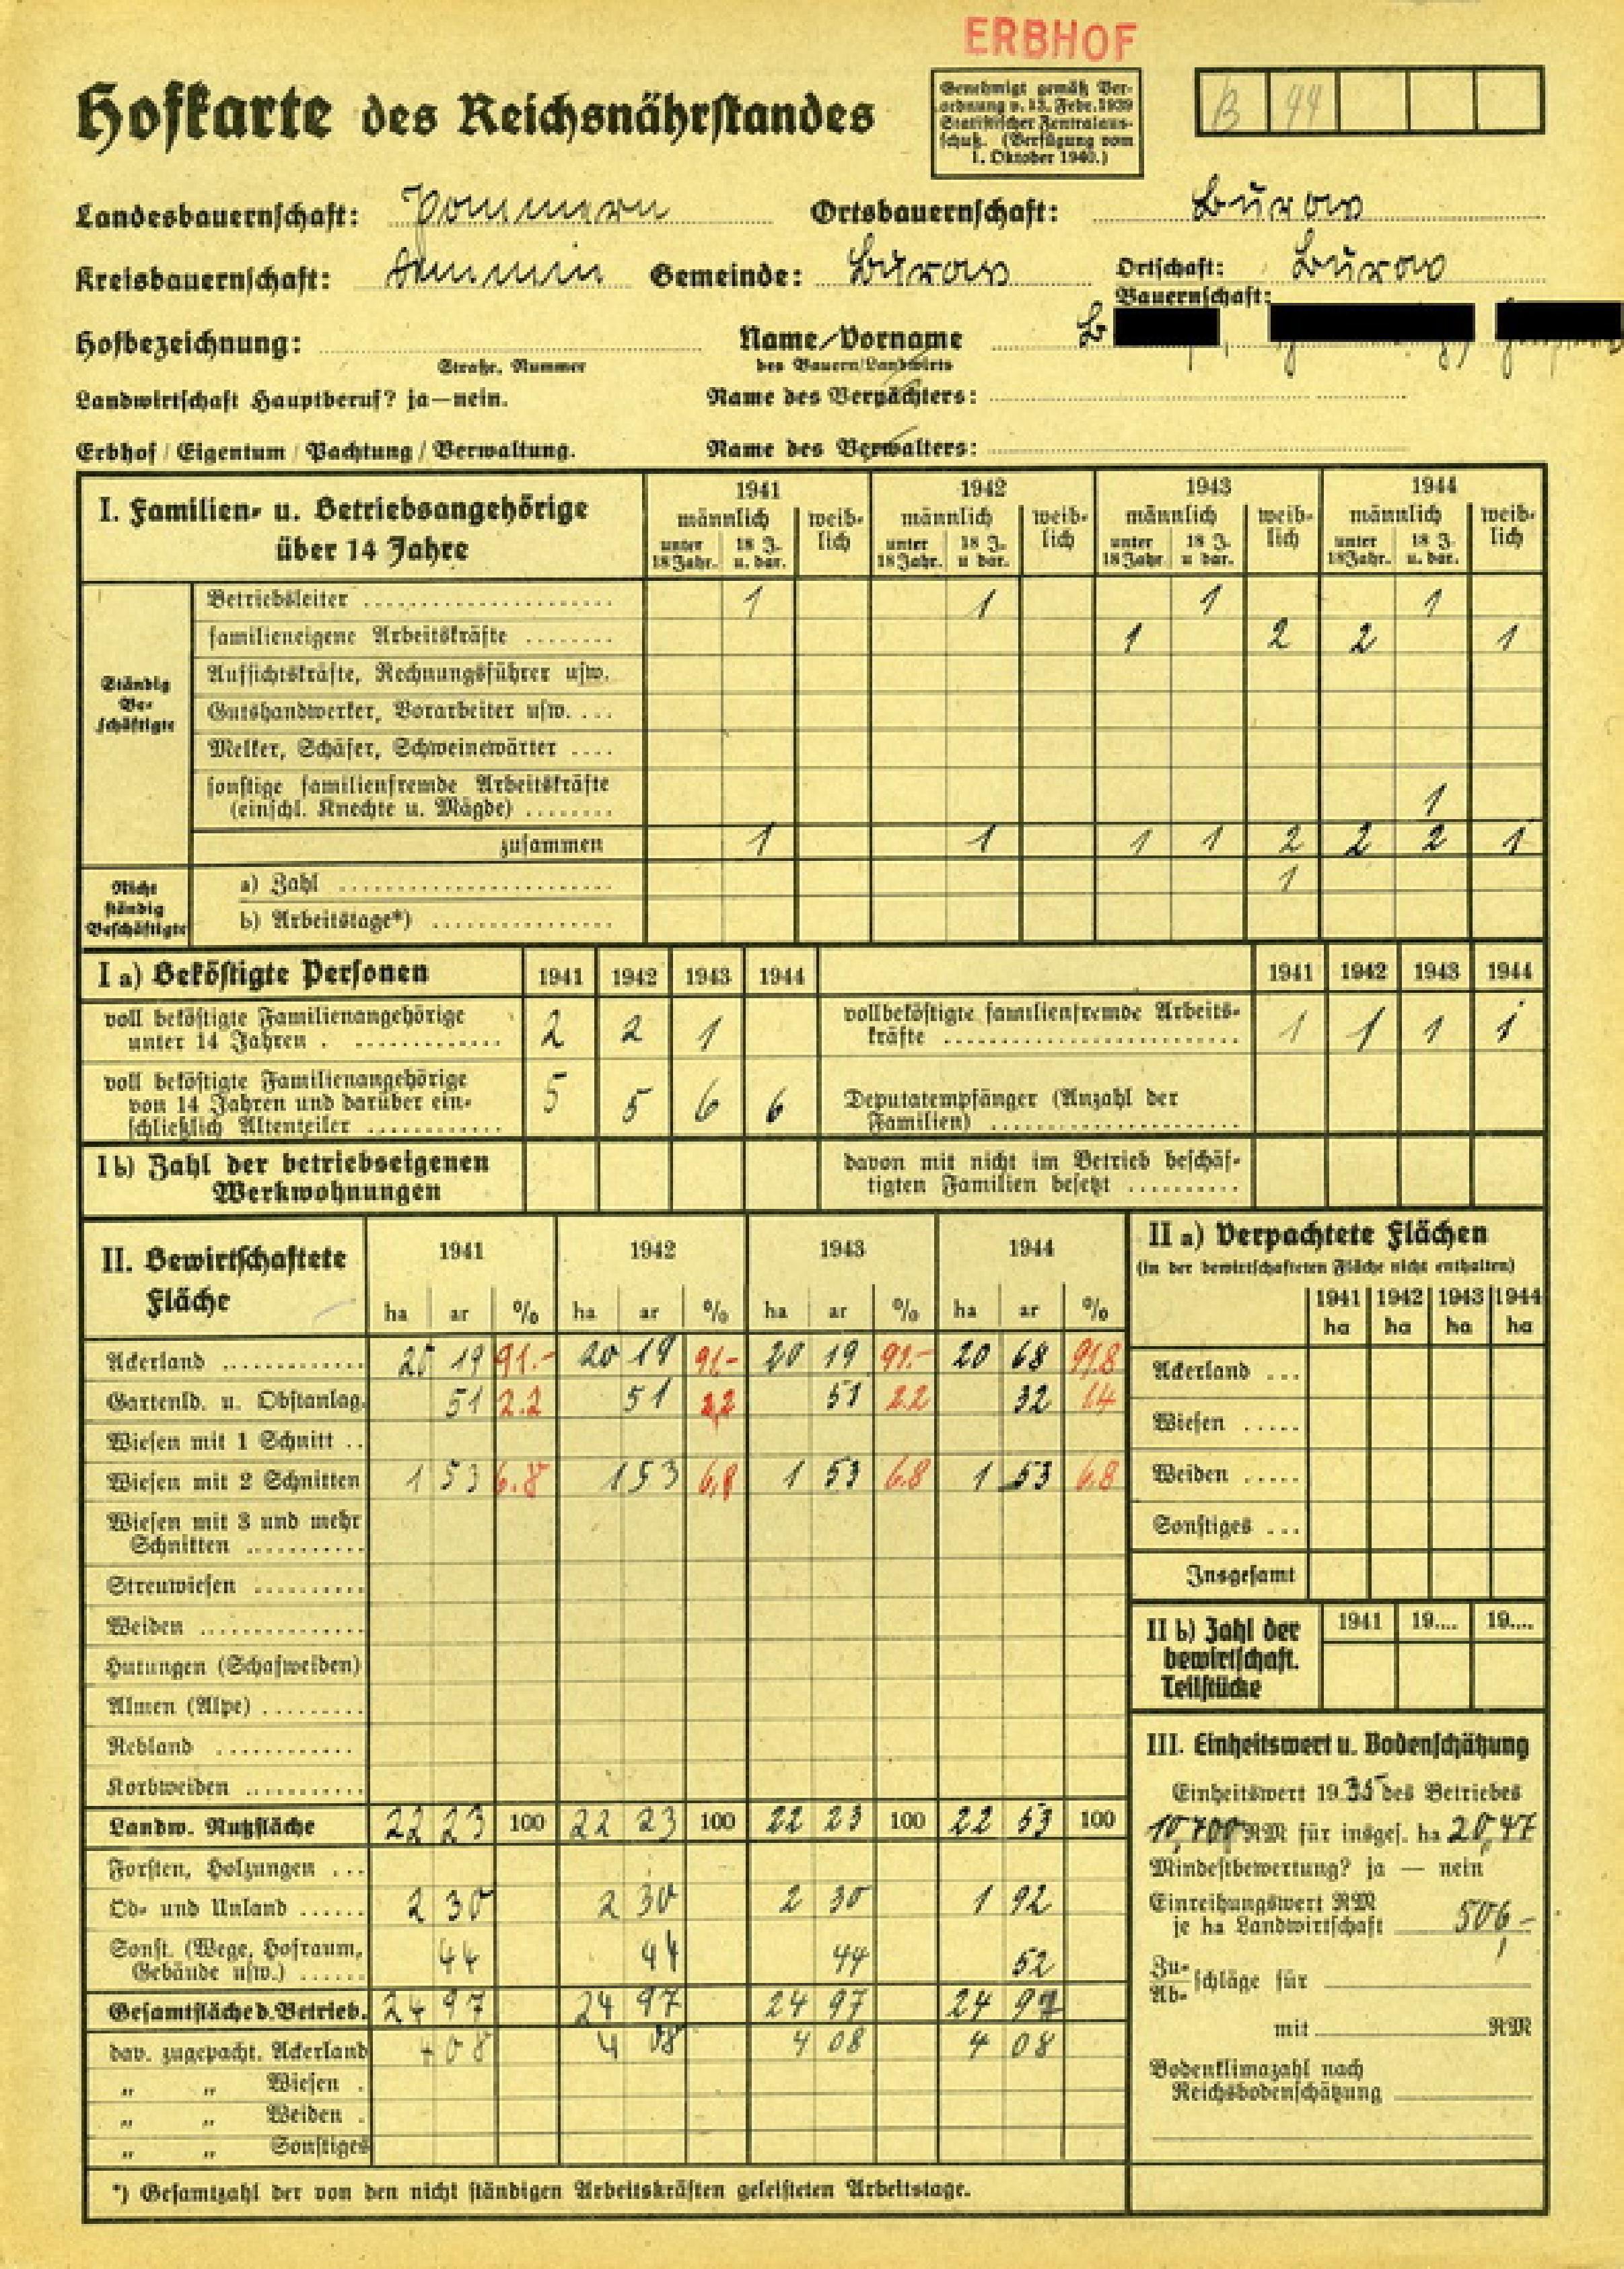 ERBHOF
Hofkarte des Reichsnährstandes
Genehmigt gemäß Ver-
ordnung v. 13. Febr. 1939
Statistischer Zentralaus-
schuß. (Verfügung vom
1. Oktober 1940.)
B 44
Landesbauernschaft: Pommern Ortsbauernschaft: Burow
Kreisbauernschaft: Demmin Gemeinde: Burow Ortschaft: Burow
Bauernschaft:
Hofbezeichnung: Name/Vorname B
Straße, Nummer des Bauern/Landwirts
Landwirtschaft Hauptberuf? ja—nein. Name des Verpächters:
Erbhof / Eigentum / Pachtung / Verwaltung. Name des Verwalters:
I. Familien- u. Betriebsangehörige über 14 Jahre
1941 1942 1943 1944
männlich weib-lich männlich weib-lich männlich weib-lich männlich weib-lich
unter 18 Jahr. 18 J. u. dar. unter 18 Jahr. 18 J. u dar. unter 18 Jahr 18 J. u dar. unter 18 Jahr. 18 J. u. dar.
Ständig Be-schäftigte
Betriebsleiter 1 1 1 1
familieneigene Arbeitskräfte 1 2 2 1
Aufsichtskräfte, Rechnungsführer usw.
Gutshandwerker, Vorarbeiter usw.
Melker, Schäfer, Schweinewärter
sonstige familienfremde Arbeitskräfte
(einschl. Knechte u. Mägde) 1
zusammen 1 1 1 1 2 2 2 1
Nicht ständig Beschäftigte
a) Zahl 1
b) Arbeitstage*)
I a) Beköstigte Personen 1941 1942 1943 1944 1941 1942 1943 1944
voll beköstigte Familienangehörige
unter 14 Jahren 2 2 1
vollbeköstigte familienfremde Arbeits-
kräfte 1 1 1 1
voll beköstigte Familienangehörige
von 14 Jahren und darüber ein-
schließlich Altenteiler 5 5 6 6
Deputatempfänger (Anzahl der
Familien)
I b) Zahl der betriebseigenen
Werkwohnungen
davon mit nicht im Betrieb beschäf-
tigten Familien besetzt
II. Bewirtschaftete Fläche 1941 1942 1943 1944
ha ar % ha ar % ha ar % ha ar %
Ackerland 20 19 91.- 20 19 91.- 20 19 91.- 20 68 91.8
Gartenld. u. Obstanlag. 51 2.2 51 2,2 51 2.2 32 1.4
Wiesen mit 1 Schnitt
Wiesen mit 2 Schnitten 1 53 6.8 1 53 6,8 1 53 6.8 1 53 6.8
Wiesen mit 3 und mehr
Schnitten
Streuwiesen
Weiden
Hutungen (Schafweiden)
Almen (Alpe)
Rebland
Korbweiden
Landw. Nutzfläche 22 23 100 22 23 100 22 23 100 22 53 100
Forsten, Holzungen
Öd- und Unland 2 30 2 30 2 30 1 92
Sonst. (Wege, Hofraum,
Gebäude usw.) 44 44 44 52
Gesamtfläche d. Betrieb. 24 97 24 97 24 97 24 97
dav. zugepacht. Ackerland 4 08 4 08 4 08 4 08
„ „ Wiesen
„ „ Weiden
„ „ Sonstiges
*) Gesamtzahl der von den nicht ständigen Arbeitskräften geleisteten Arbeitstage.
II a) Verpachtete Flächen
(in der bewirtschafteten Fläche nicht enthalten)
1941 1942 1943 1944
ha ha ha ha
Ackerland
Wiesen
Weiden
Sonstiges
Insgesamt
II b) Zahl der
bewirtschaft.
Teilstücke
1941 19.... 19....
III. Einheitswert u. Bodenschätzung
Einheitswert 1935 des Betriebes
10,700 RM für insges. ha 20,47
Mindestbewertung? ja — nein
Einreihungswert RM
je ha Landwirtschaft 506,-
Zu-
Ab- schläge für
mit RM
Bodenklimazahl nach
Reichsbodenschätzung